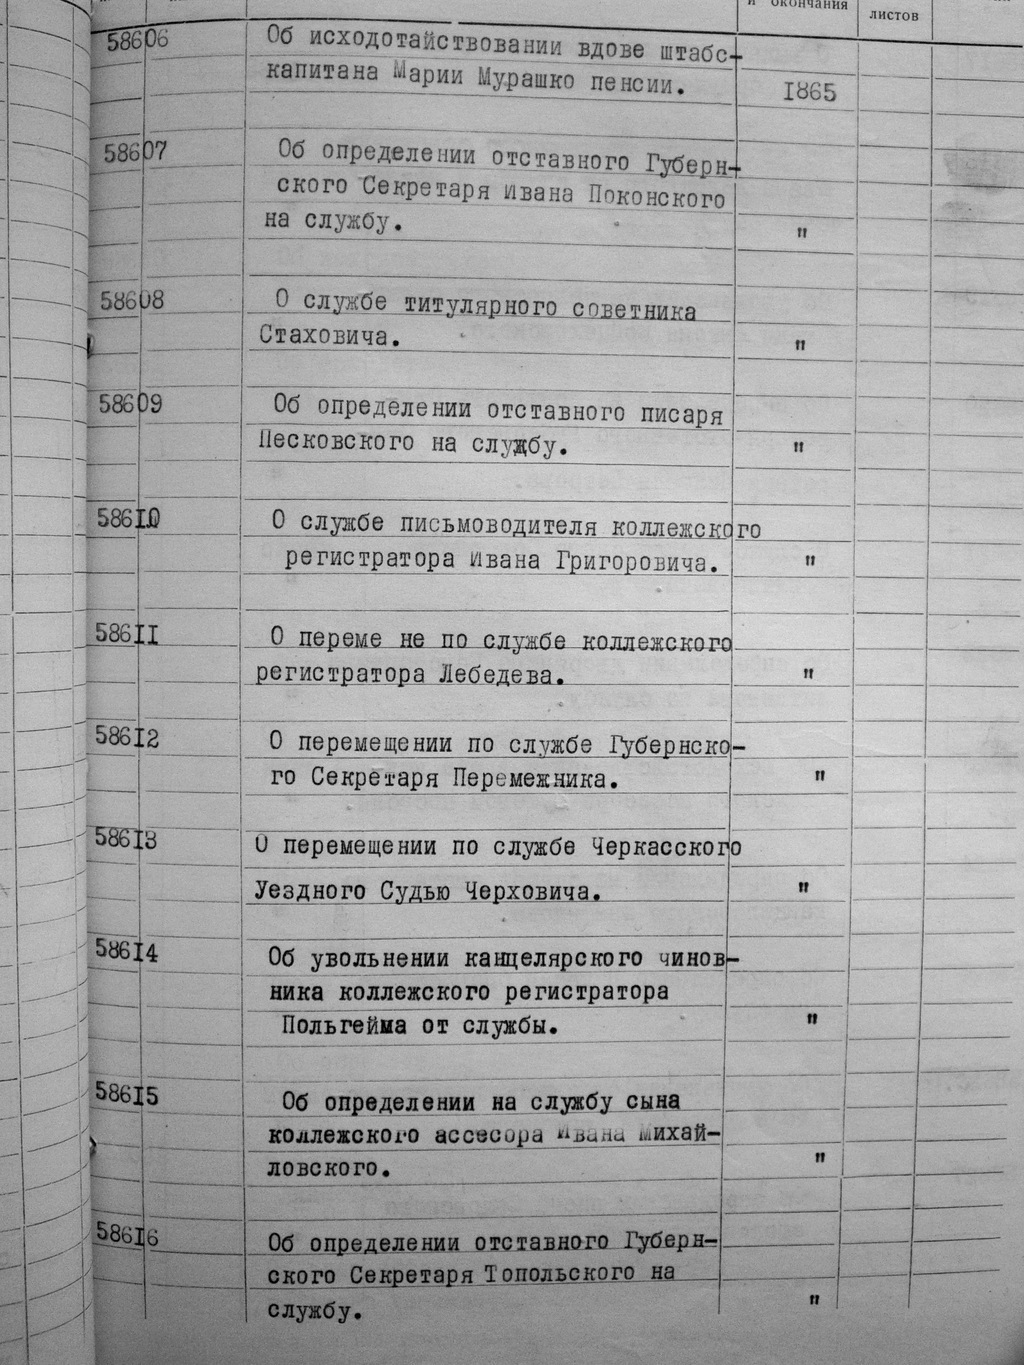 и окончания
листов
58606 Об исходотайствовании вдове штабс-
капитана Марии Мурашко пенсии. 1865
58607 Об определении отставного Губерн-
ского Секретаря Ивана Поконского
на службу. "
58608 О службе титулярного советника
Стаховича. "
58609 Об определении отставного писаря
Песковского на службу. "
58610 О службе письмоводителя коллежского
регистратора Ивана Григоровича. "
58611 О переме не по службе коллежского
регистратора Лебедева. "
58612 О перемещении по службе Губернско-
го Секретаря Перемежника. "
58613 О перемещении по службе Черкасского
Уездного Судью Черховича. "
58614 Об увольнении канцелярского чинов-
ника коллежского регистратора
Польгейма от службы. "
58615 Об определении на службу сына
коллежского ассесора Ивана Михай-
ловского. "
58616 Об определении отставного Губерн-
ского Секретаря Топольского на
службу. "